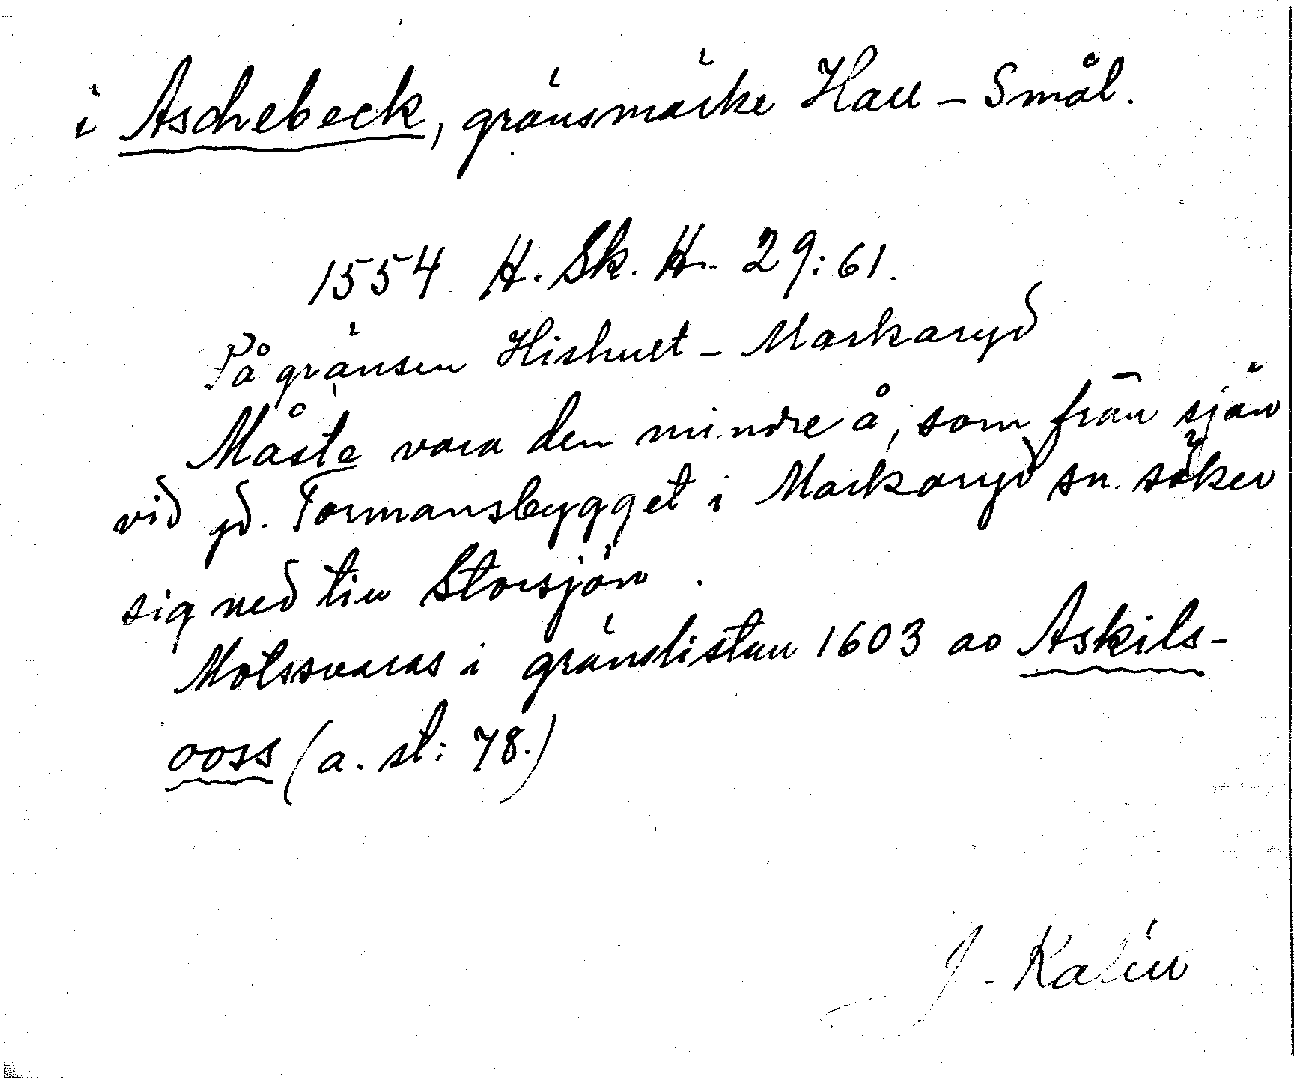 i Aschebeck, gränsmärke Hall - Smål.
1554 H. Sk. H. 29:61.
På gränsen Hishult - Markaryd
Måste vara den mindre å, som från sjön
vid gd. Formansbygget i Markaryd sn. söker
sig ned till Storsjön.
Motsvaras i gränslistan 1603 av Askils-
ooss (a. st: 78.)
J. Kalén